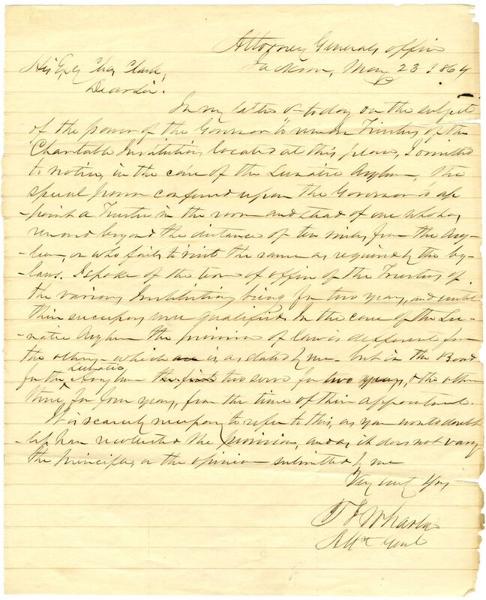 Attorney Generals office
Jackson, May 23. 1864
His Excy Chas Clark,
Dear Sir.
In my letter of today on the subject
of the power of the Governor to remove Trustees of the
Charitable Institutions located at this place, I omitted
to notice, in the case of the Lunatic Asylum, the
special power conferred upon the Governor to ap
point a Trustee in the room and stead of one who has
removed beyond the distance of ten miles from the Asy-
-lum, or who fails to visit the same as required by the by-
-laws. I spoke of the term of office of the Trustees of
the various Institutions being for two years, and until
their successors were qualified. In the case of the Lu-
natic Asylum the provision of law is different from
the others, which is as stated by me. but in the Board
for the Lunatic Asylum two serve for two years, & the other
three for four years, from the time of their appointment.
It is scarcely necessary to refer to this, as you would doubt
-less have recollected the provision, and as it does not vary
the principles or the opinion submitted by me
Very Resp Yrs
T J Wharton
Atto Genl